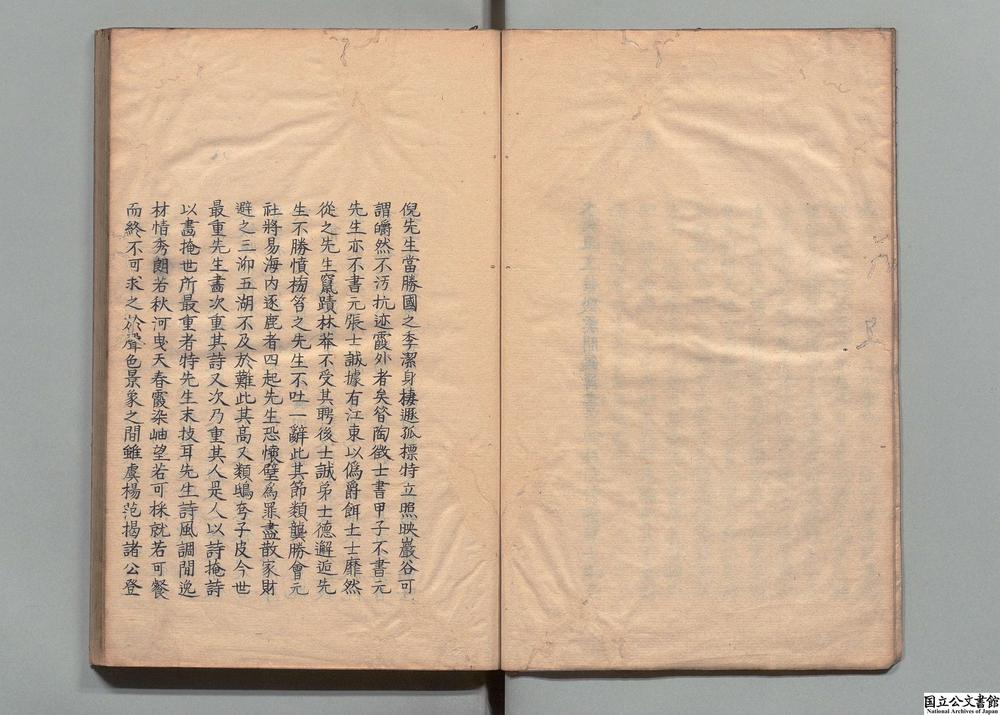 倪先生當勝國之季潔身棲遯孤標特立照映巖谷可
謂皭然不汚抗迹霞外者矣昝陶徵士書甲子不書元
先生亦不書元張士誠據有江東以僞爵餌士士靡然
從之先生竄蹟林莽不受其聘後士誠弟士德邂逅先
生不勝憤搒笞之先生不吐一辭此其節類龔勝會元
社將易海內逐鹿者四起先生恐懷璧爲罪盡散家財
避之三泖五湖不及於難此其高又類鴟夸子皮今世
最重先生畵次重其詩又次乃重其人是人以詩掩詩
以畵掩世所最重者特先生末技耳先生詩風調閒逸
材情秀朗若秋河曳天春霞染岫望若可採就若可餐
而終不可求之於聲色景象之間雖虞楊范揭諸公登
国立公文書館
National Archives of Japan